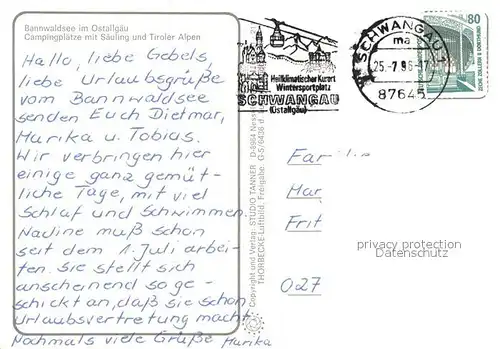 Bannwaldsee im Ostallgäu
Campingplätze mit Säuling und Tiroler Alpen
Hallo, liebe Gebels,
liebe Urlaubsgrüße
vom Bannwaldsee
senden Euch Dietmar,
Marika u. Tobias.
Wir verbringen hier
einige ganz gemüt-
liche Tage, mit viel
Schlaf und Schwimmen.
Nadine muß schon
seit dem 1. Juli arbei-
ten. Sie stellt sich
anscheinend so ge-
schickt an, daß sie schon
Urlaubsvertretung macht.
Nochmals viele Grüße Marika
Copyright und Verlag: STUDIO TANNER D-8964
THORBECKE Luftbild, Freigabe:
Heilklimatischer Kurort
Wintersportplatz
SCHWANGAU
(Ostallgäu)
SCHWANGAU 1
ma
25.-7.96-17
87645
80
ZECHE ZOLLERN II DORTMUND
Fa
Har
Frit
027
privacy protection
Datenschutz